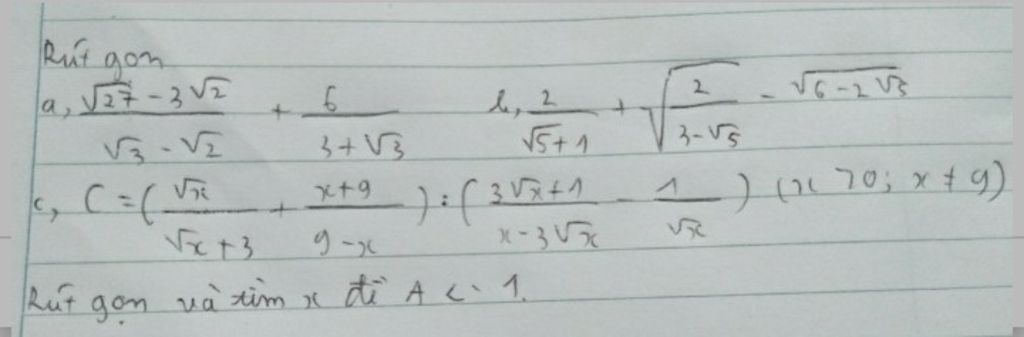 Rút gọn
a, (√27 - 3√2)/(√3 - √2) + 6/(3+√3) b, 2/(√5+1) + √(2/(3-√5)) - √(6-2√5)
c, C = (√x/(√x+3) + (x+9)/(9-x)) : ((3√x+1)/(x-3√x) - 1/√x) (x > 0; x ≠ 9)
Rút gọn và tìm x để A < -1.